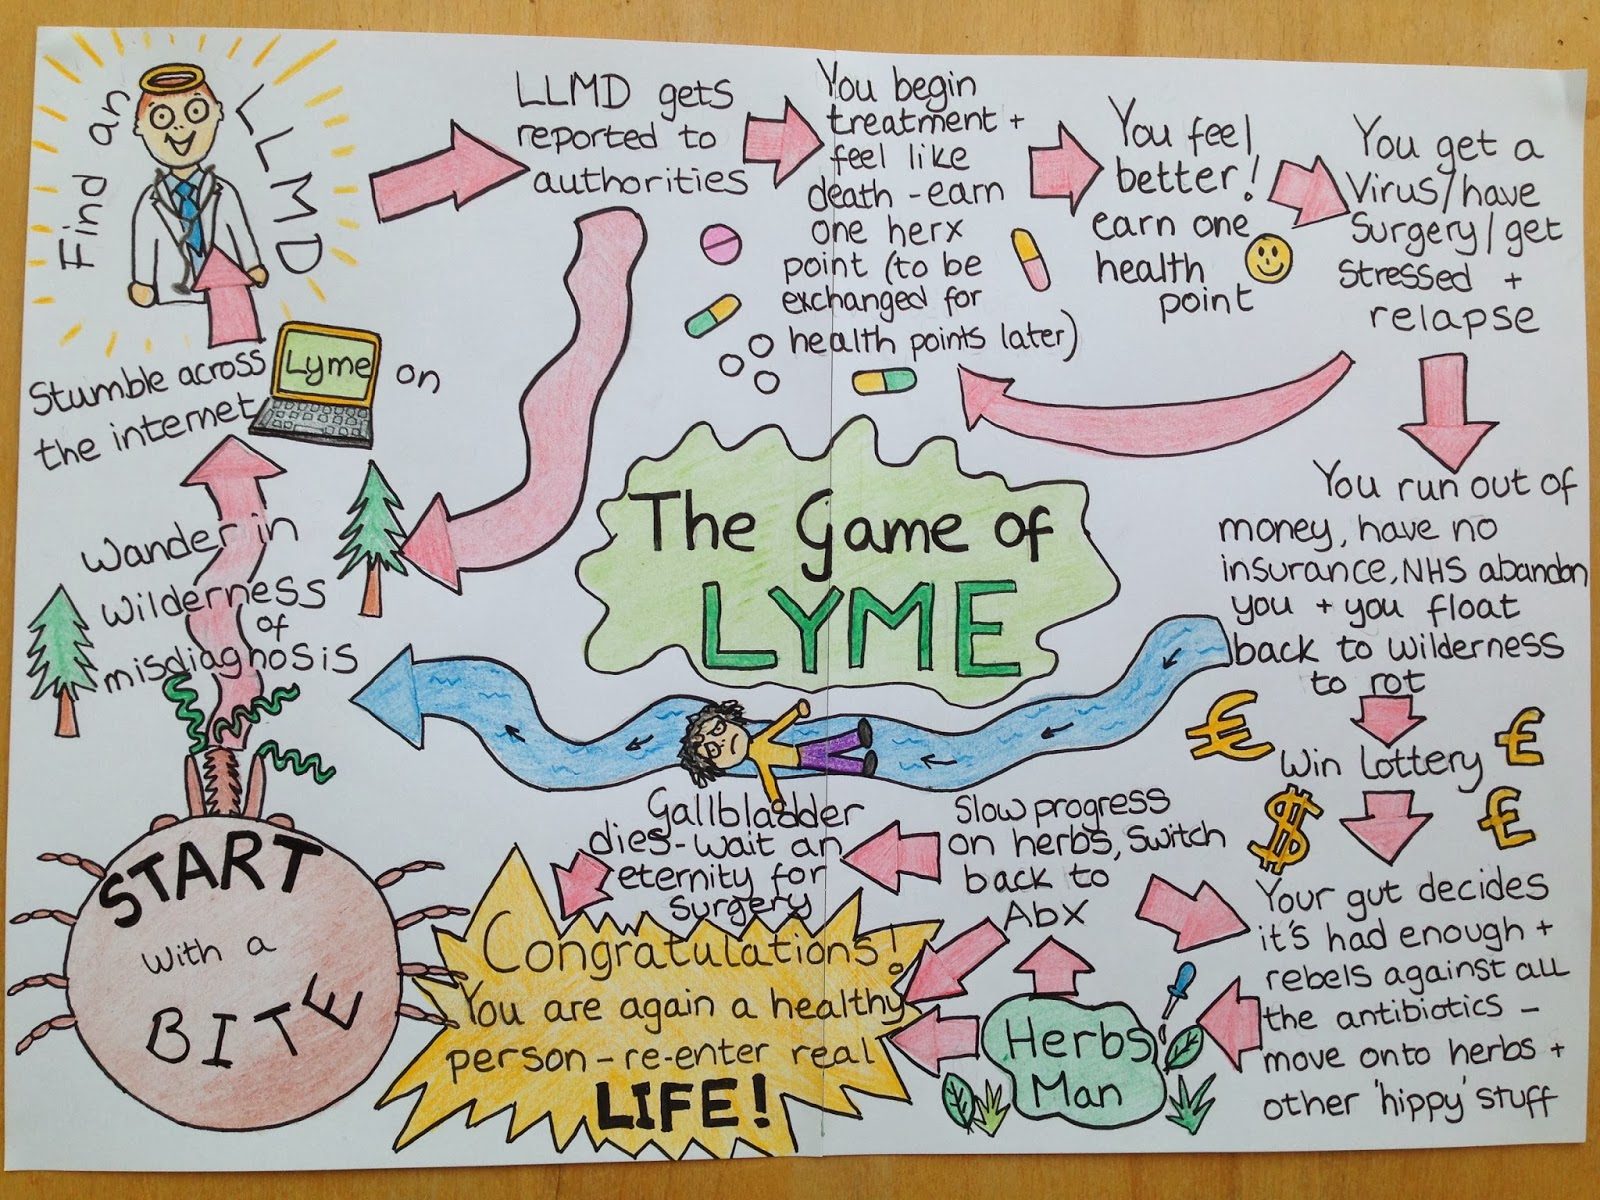 The Game of
LYME
START
with a
BITE
Wander in
wilderness
of
misdiagnosis
Stumble across Lyme on
the internet
Find an
LLMD
LLMD gets
reported to
authorities
You begin
treatment +
feel like
death - earn
one herx
point (to be
exchanged for
health points later)
You feel
better!
earn one
health
point
You get a
Virus/have
Surgery/get
Stressed +
relapse
You run out of
money, have no
insurance, NHS abandon
you + you float
back to wilderness
to rot
£ £
Win Lottery
$ £
Your gut decides
it's had enough +
rebels against all
the antibiotics -
move onto herbs +
other 'hippy' stuff
Herbs
Man
Slow progress
on herbs, Switch
back to
Abx
Gallbladder
dies - wait an
eternity for
Surgery
Congratulations!
You are again a healthy
person - re-enter real
LIFE!